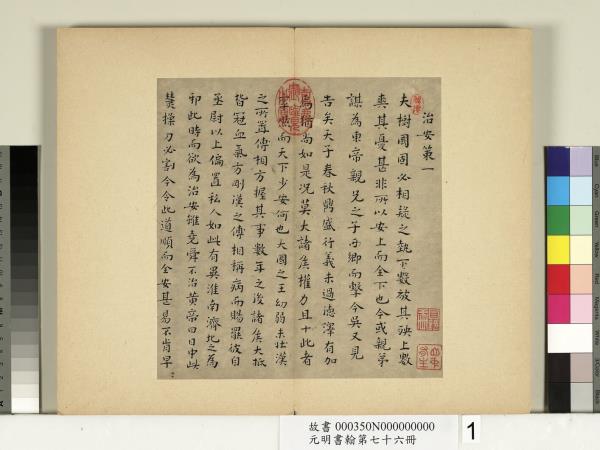 治安策一
夫樹國固必相疑之埶下數被其殃上數
爽其憂甚非所以安上而全下也今或親弟
謀為東帝親兄之子西鄉而擊今吳又見
告矣天子春秋鼎盛行義未過德澤有加
焉猶尚如是況莫大諸侯權力且十此者
虖然而天下少安何也大國之王幼弱未壯漢
之所置傅相方握其事數年之後諸侯大抵
皆冠血氣方剛漢之傅相稱病而賜罷彼自
丞尉以上偏置私人如此有異淮南濟北之為
邪此時而欲為治安雖堯舜不治黃帝曰日中必
操刀必割今令此道順而全安甚易不肯早
故書 000350N000000000
元明書翰第七十六冊
1